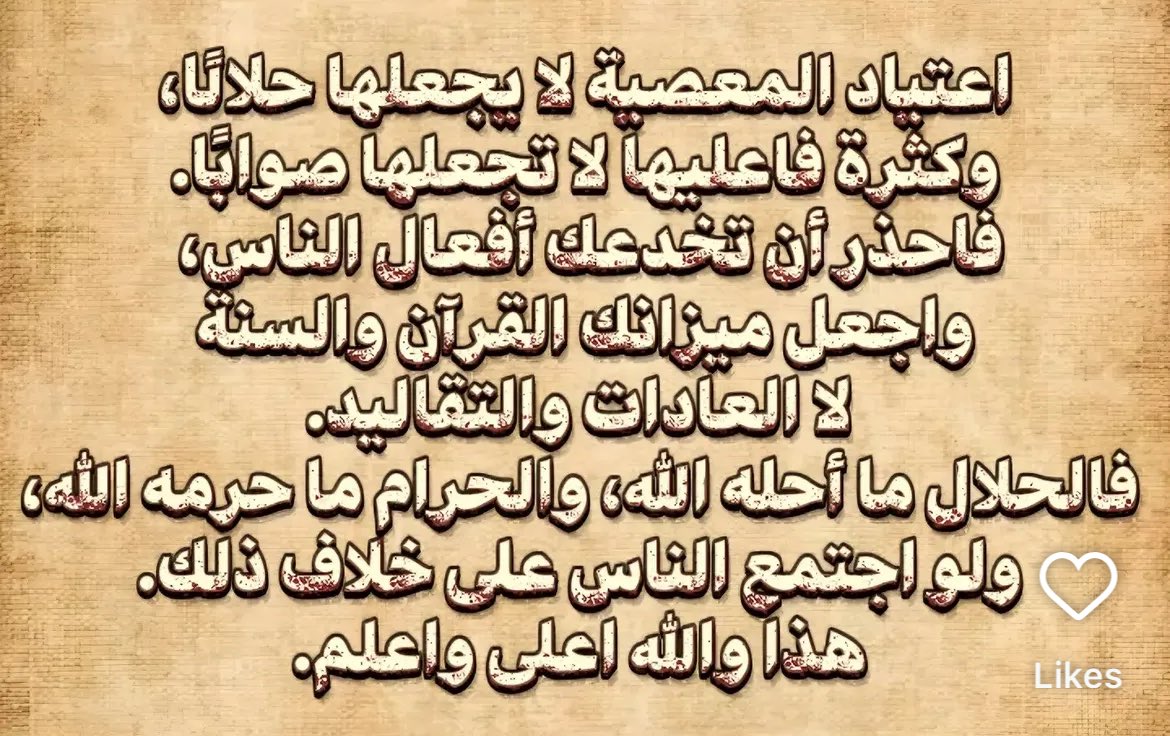 اعتياد المعصية لا يجعلها حلالًا،
وكثرة فاعليها لا تجعلها صوابًا.
فاحذر أن تخدعك أفعال الناس،
واجعل ميزانك القرآن والسنة
لا العادات والتقاليد.
فالحلال ما أحله الله، والحرام ما حرمه الله،
ولو اجتمع الناس على خلاف ذلك.
هذا والله اعلى واعلم.
Likes